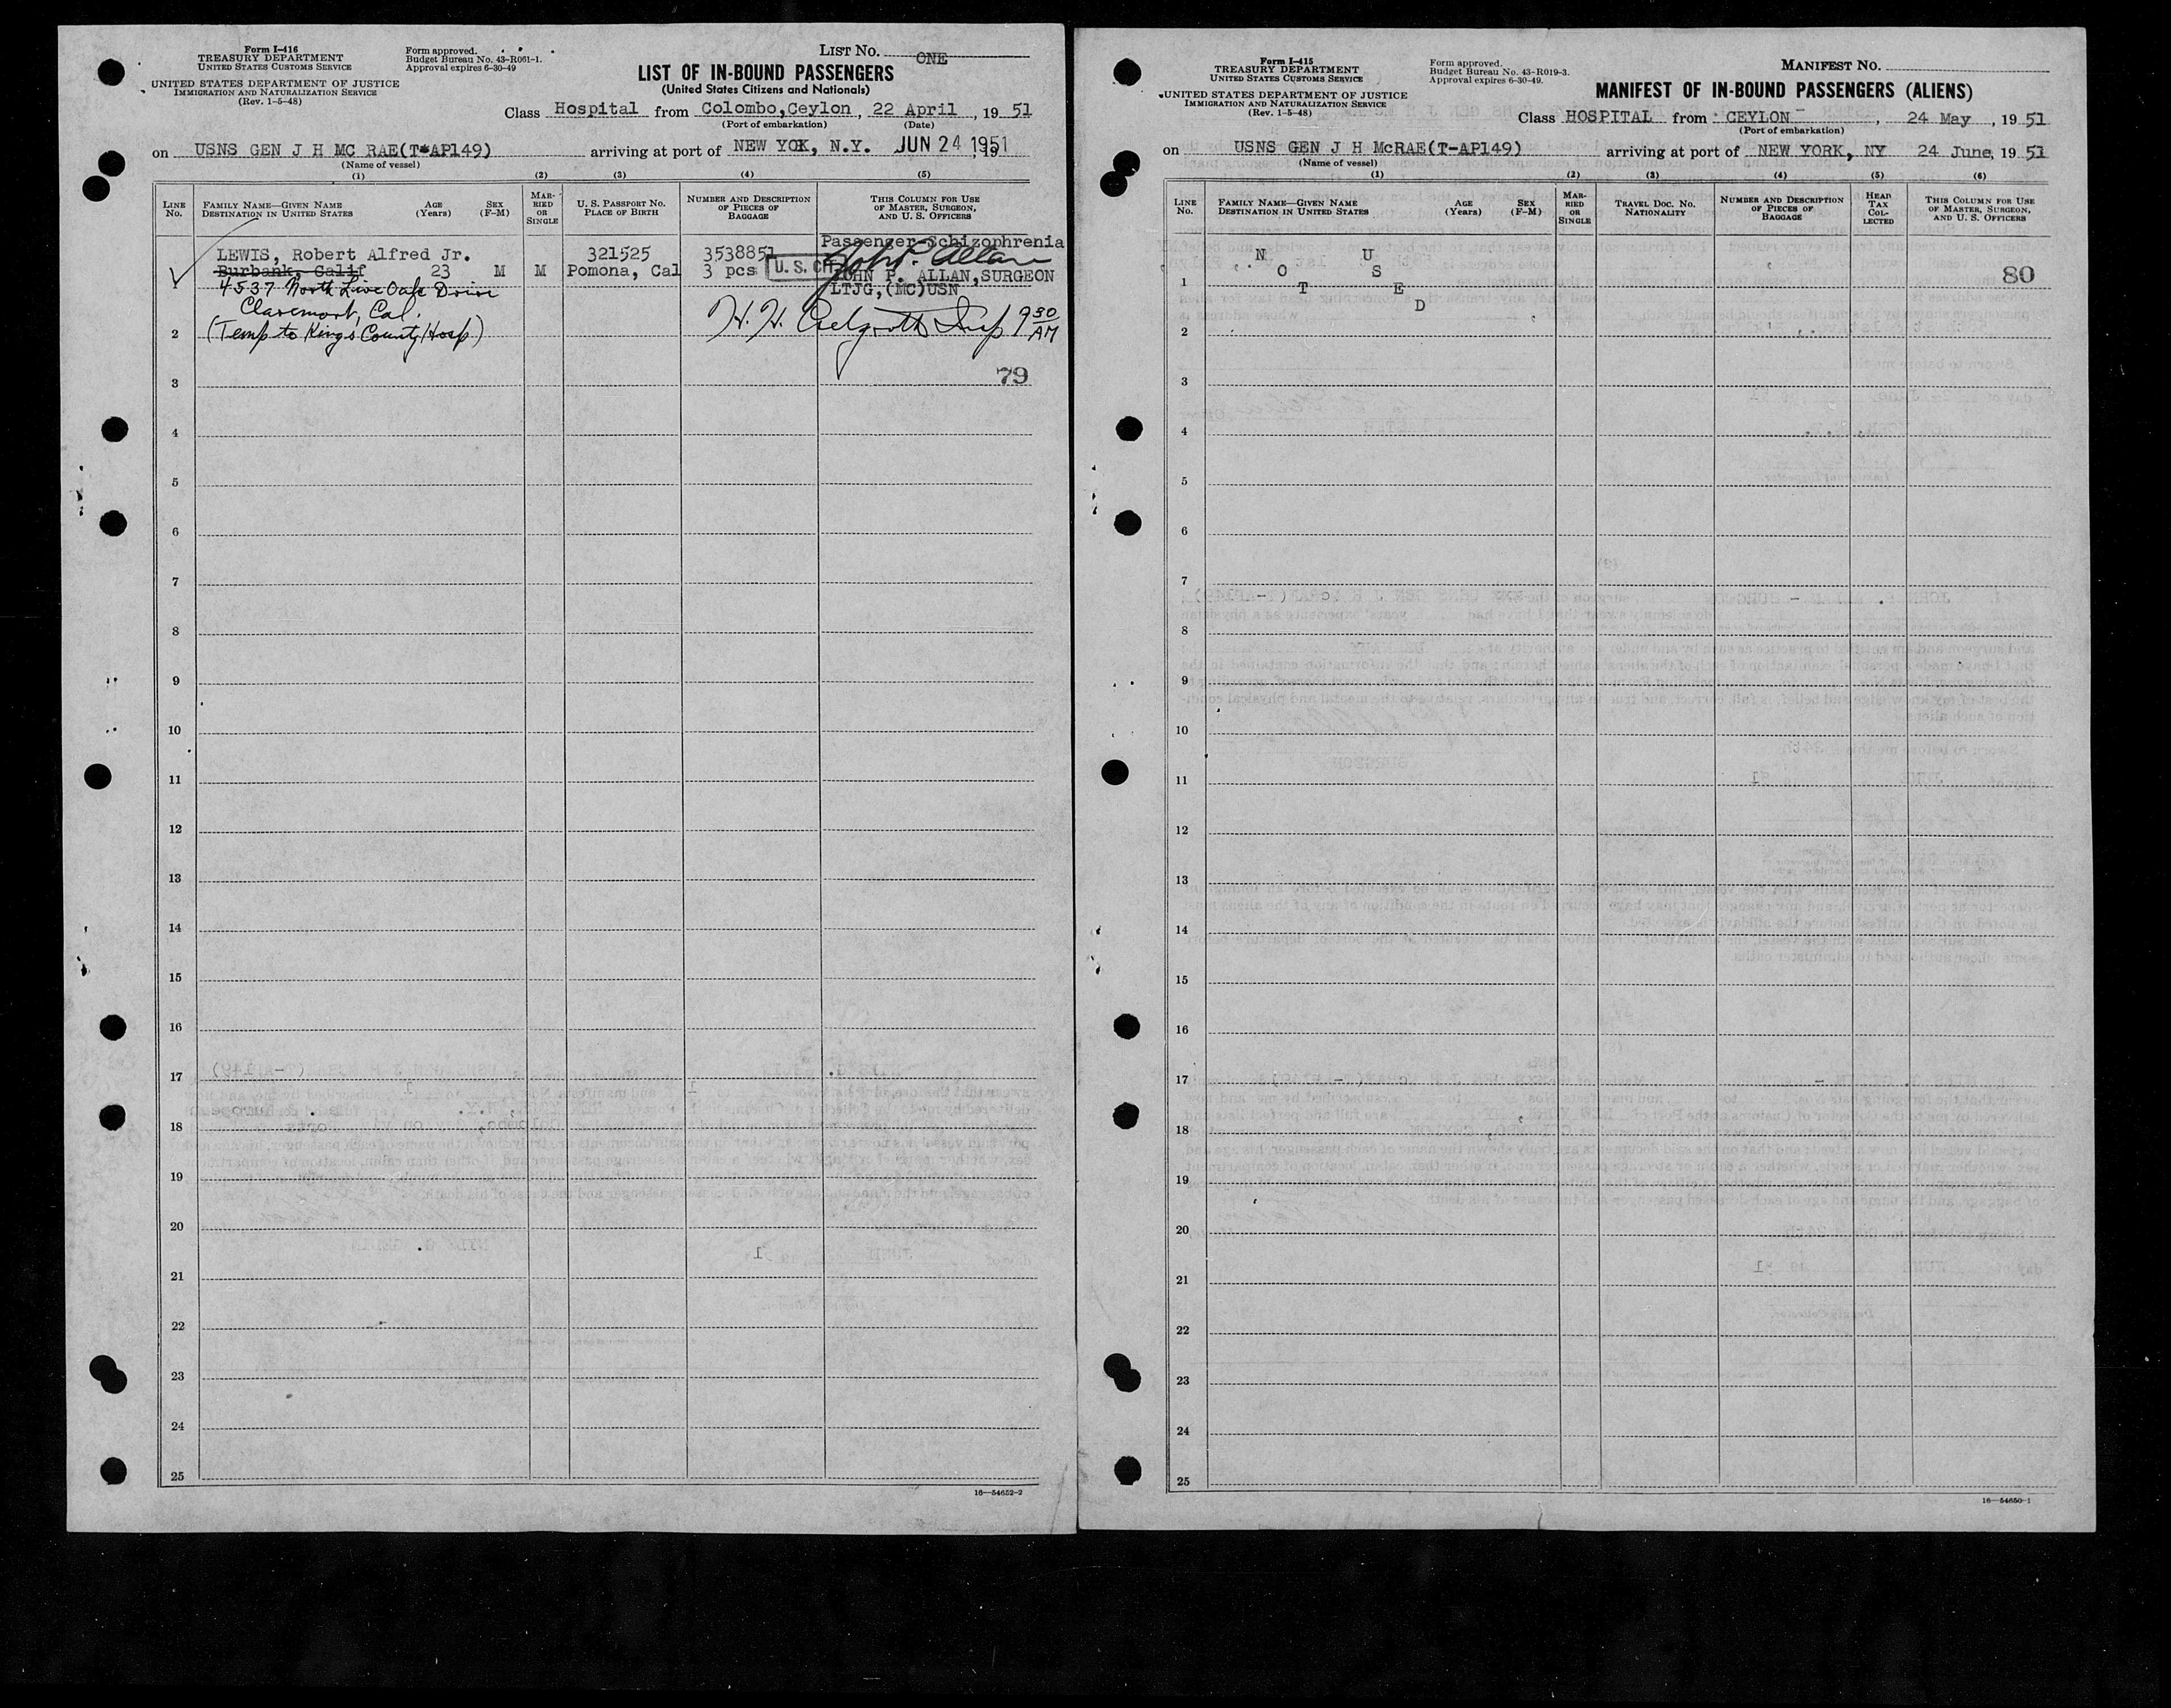 Form I-416
TREASURY DEPARTMENT
UNITED STATES CUSTOMS SERVICE
UNITED STATES DEPARTMENT OF JUSTICE
IMMIGRATION AND NATURALIZATION SERVICE
(Rev. 1-5-48)
Form approved.
Budget Bureau No. 43-R061-1.
Approval expires 6-30-49
LIST NO. ONE
LIST OF IN-BOUND PASSENGERS
(United States Citizens and Nationals)
Class Hospital from Colombo,Ceylon, 22 April, 19 51
(Port of embarkation) (Date)
on USNS GEN J H MC RAE(T*AP149) arriving at port of NEW YOK, N.Y. JUN 24 1951
(Name of vessel)
(1) (2) (3) (4) (5)
LINE NO.
FAMILY NAME—GIVEN NAME
DESTINATION IN UNITED STATES
AGE (Years)
SEX (F-M)
MARRIED OR SINGLE
U. S. PASSPORT NO.
PLACE OF BIRTH
NUMBER AND DESCRIPTION OF PIECES OF BAGGAGE
THIS COLUMN FOR USE OF MASTER, SURGEON, AND U. S. OFFICERS
Passenger-Schizophrenia
LEWIS, Robert Alfred Jr. 321525 3538851 John P. Allan
Burbank, Calif 23 M M Pomona, Cal 3 pcs U. S. CIT JOHN P. ALLAN,SURGEON
1 4537 North Live Oak Drive LTJG,(MC)USN
Claremont, Cal.
2 (Temp to Kings County Hosp) H. H. Insp 9 30 AM
3 79
4
5
6
7
8
9
10
11
12
13
14
15
16
17
18
19
20
21
22
23
24
25
16—54652-2
Form I-415
TREASURY DEPARTMENT
UNITED STATES CUSTOMS SERVICE
UNITED STATES DEPARTMENT OF JUSTICE
IMMIGRATION AND NATURALIZATION SERVICE
(Rev. 1-5-48)
Form approved.
Budget Bureau No. 43-R019-3.
Approval expires 6-30-49.
MANIFEST NO.
MANIFEST OF IN-BOUND PASSENGERS (ALIENS)
Class HOSPITAL from CEYLON, 24 May, 19 51
(Port of embarkation)
on USNS GEN J H McRAE(T-AP149) arriving at port of NEW YORK, NY 24 June, 19 51
(Name of vessel)
(1) (2) (3) (4) (5) (6)
LINE NO.
FAMILY NAME—GIVEN NAME
DESTINATION IN UNITED STATES
AGE (Years)
SEX (F-M)
MARRIED OR SINGLE
TRAVEL DOC. NO.
NATIONALITY
NUMBER AND DESCRIPTION OF PIECES OF BAGGAGE
HEAD TAX COLLECTED
THIS COLUMN FOR USE OF MASTER, SURGEON, AND U. S. OFFICERS
N U
O S 80
1 T E
D
2
3
4
5
6
7
8
9
10
11
12
13
14
15
16
17
18
19
20
21
22
23
24
25
16—54650-1